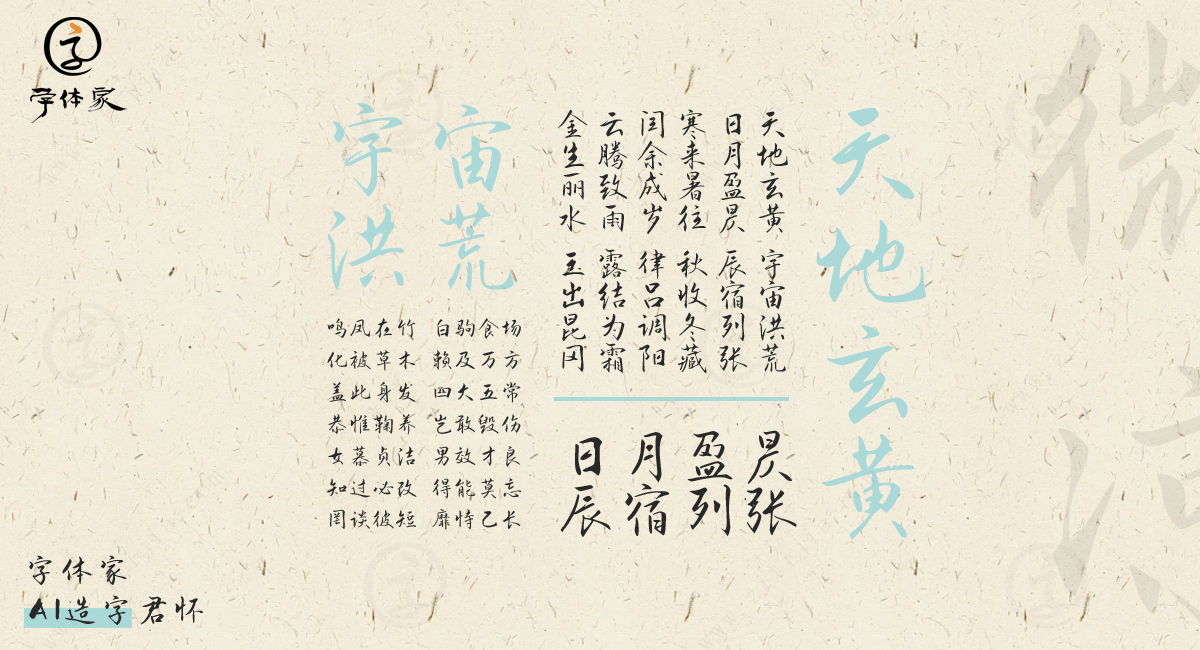 字
字体家
天地玄黄
天地玄黄 宇宙洪荒
日月盈昃 辰宿列张
寒来暑往 秋收冬藏
闰余成岁 律吕调阳
云腾致雨 露结为霜
金生丽水 玉出昆冈
日月盈昃
辰宿列张
宇宙
洪荒
鸣凤在竹 白驹食场
化被草木 赖及万方
盖此身发 四大五常
恭惟鞠养 岂敢毁伤
女慕贞洁 男效才良
知过必改 得能莫忘
罔谈彼短 靡恃己长
字体家
AI造字君怀